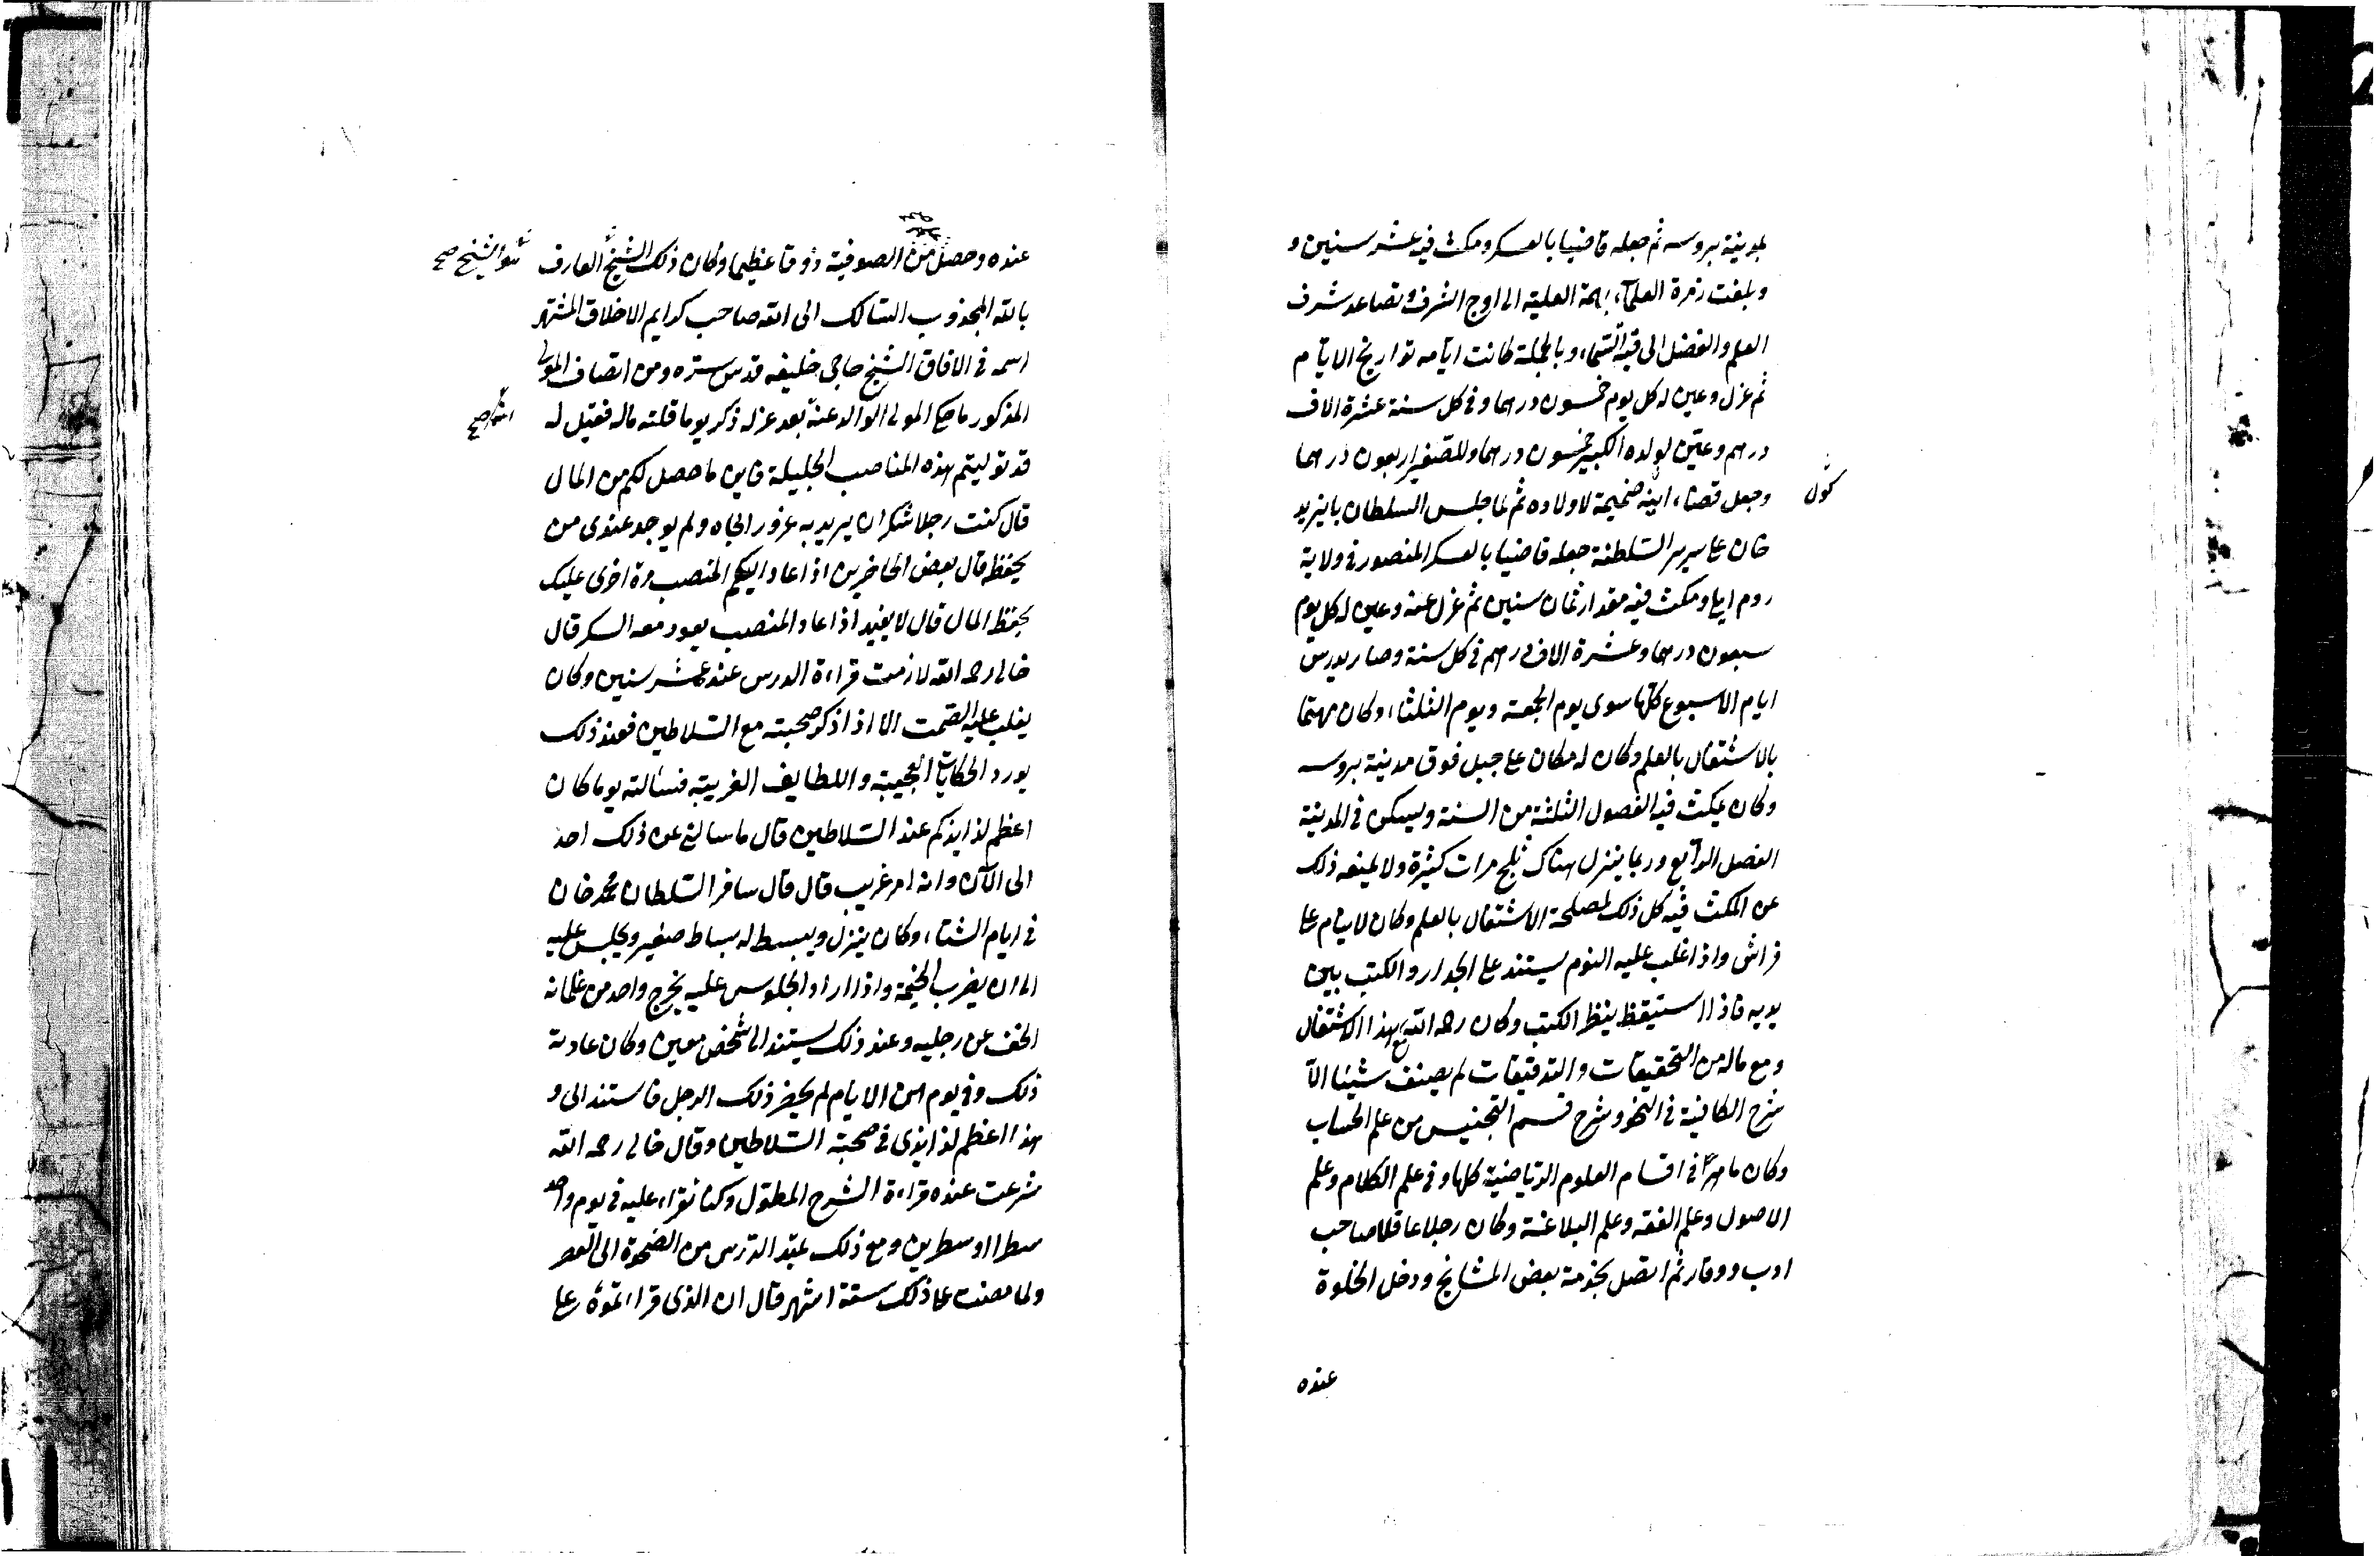 بمدينة بروسه ثم جعله قاضيا بالعسكر ومكث فيه عشر سنين و
وبلغت زمرة العلماء بهمته العلية الى اوج الشرف وتصاعد شرف
العلم والفضل الى قبة السماء وبالجملة كانت ايامه تواريخ الايام
ثم عزل وعين له كل يوم خمسون درهما وفى كل سنة عشرة الاف
درهم وعين لولده الكبير خمسون درهما وللصغير اربعون درهما
كول
وجعل قضاء اينه ضميمة لاولاده ثم لما جلس السلطان بايزيد
خان على سرير السلطنة جعله قاضيا بالعسكر المنصور فى ولاية
روم ايلى ومكث فيه مقدار ثمان سنين ثم عزل عنه وعين له كل يوم
سبعون درهما وعشرة الاف درهم فى كل سنة وصار يدرس
ايام الاسبوع كلها سوى يوم الجمعة ويوم الثلثاء وكان مهتما
بالاشتغال بالعلم وكان له مكان على جبل فوق مدينة بروسه
وكان يمكث فيه الفصول الثلثة من السنة ويسكن فى المدينة
الفصل الرابع وربما ينزل هناك ثلج مرات كثيرة ولا يمنعه ذلك
عن المكث فيه كل ذلك لمصلحة الاشتغال بالعلم وكان لا ينام على
فراش واذا غلب عليه النوم يستند على الجدار والكتب بين
يديه فاذا استيقظ ينظر الكتب وكان رحمه الله مع هذا الاشتغال
ومع ماله من التحقيقات والتدقيقات لم يصنف شيئا الا
شرح الكافية فى النحو وشرح قسم التجنيس من علم الحساب
وكان ماهرا فى اقسام العلوم الرياضية كلها وفى علم الكلام وعلم
الاصول وعلم الفقه وعلم البلاغة وكان رجلا عاقلا صاحب
ادب ووقار ثم اتصل بخدمة بعض المشايخ ودخل الخلوة
عنده
عنده وحصل من الصوفية ذوقا عظيما وكان ذلك الشيخ العارف
هو الشيخ صح
بالله المجذوب السالك الى الله صاحب كرايم الاخلاق المشتهر
اسمه فى الافاق الشيخ حاجى خليفه قدس سره ومن انصاف المولى
المذكور ما حكى المولى الوالد عنه بعد عزله ذكر يوما قلة ماله فقيل له
انه صح
قد توليتم هذه المناصب الجليلة فاين ما حصل لكم من المال
قال كنت رجلا سكران يريد به غرور الجاه ولم يوجد عندى من
يحفظ قال بعض الحاضرين اذا عاد اليكم المنصب مرة اخرى عليك
بحفظ المال قال لا يفيد اذا عاد المنصب يعود معه السكر قال
خالى رحمه الله لازمت قراءة الدرس عنده عشر سنين وكان
يغلب عليه الصمت الا اذا ذكر صحبته مع السلاطين فعند ذلك
يورد الحكايات العجيبة واللطايف الغريبة فسألته يوما كان
اعظم لذايذكم عند السلاطين قال ما سالنى عن ذلك احد
الى الآن وانه امر غريب قال قال سافر السلطان محمد خان
فى ايام الشتاء وكان ينزل ويبسط له بساط صغير ويجلس عليه
الى ان يضرب الخيمة واذا اراد الجلوس عليه يخرج واحد من غلمانه
الخف عن رجليه وعند ذلك يستند الى شخص معين وكان عادته
ذلك وفى يوم من الايام لم يحضر ذلك الرجل فاستند الى و
هذا اعظم لذايذى فى صحبة السلاطين وقال خالى رحمه الله
شرعت عنده قراءة الشرح المطول وكنا نقراء عليه فى يوم واحد
سطرا او سطرين ومع ذلك يمتد الدرس من الضحوة الى العصر
ولما مضت على ذلك ستة اشهر قال ان الذى قراءتموه على